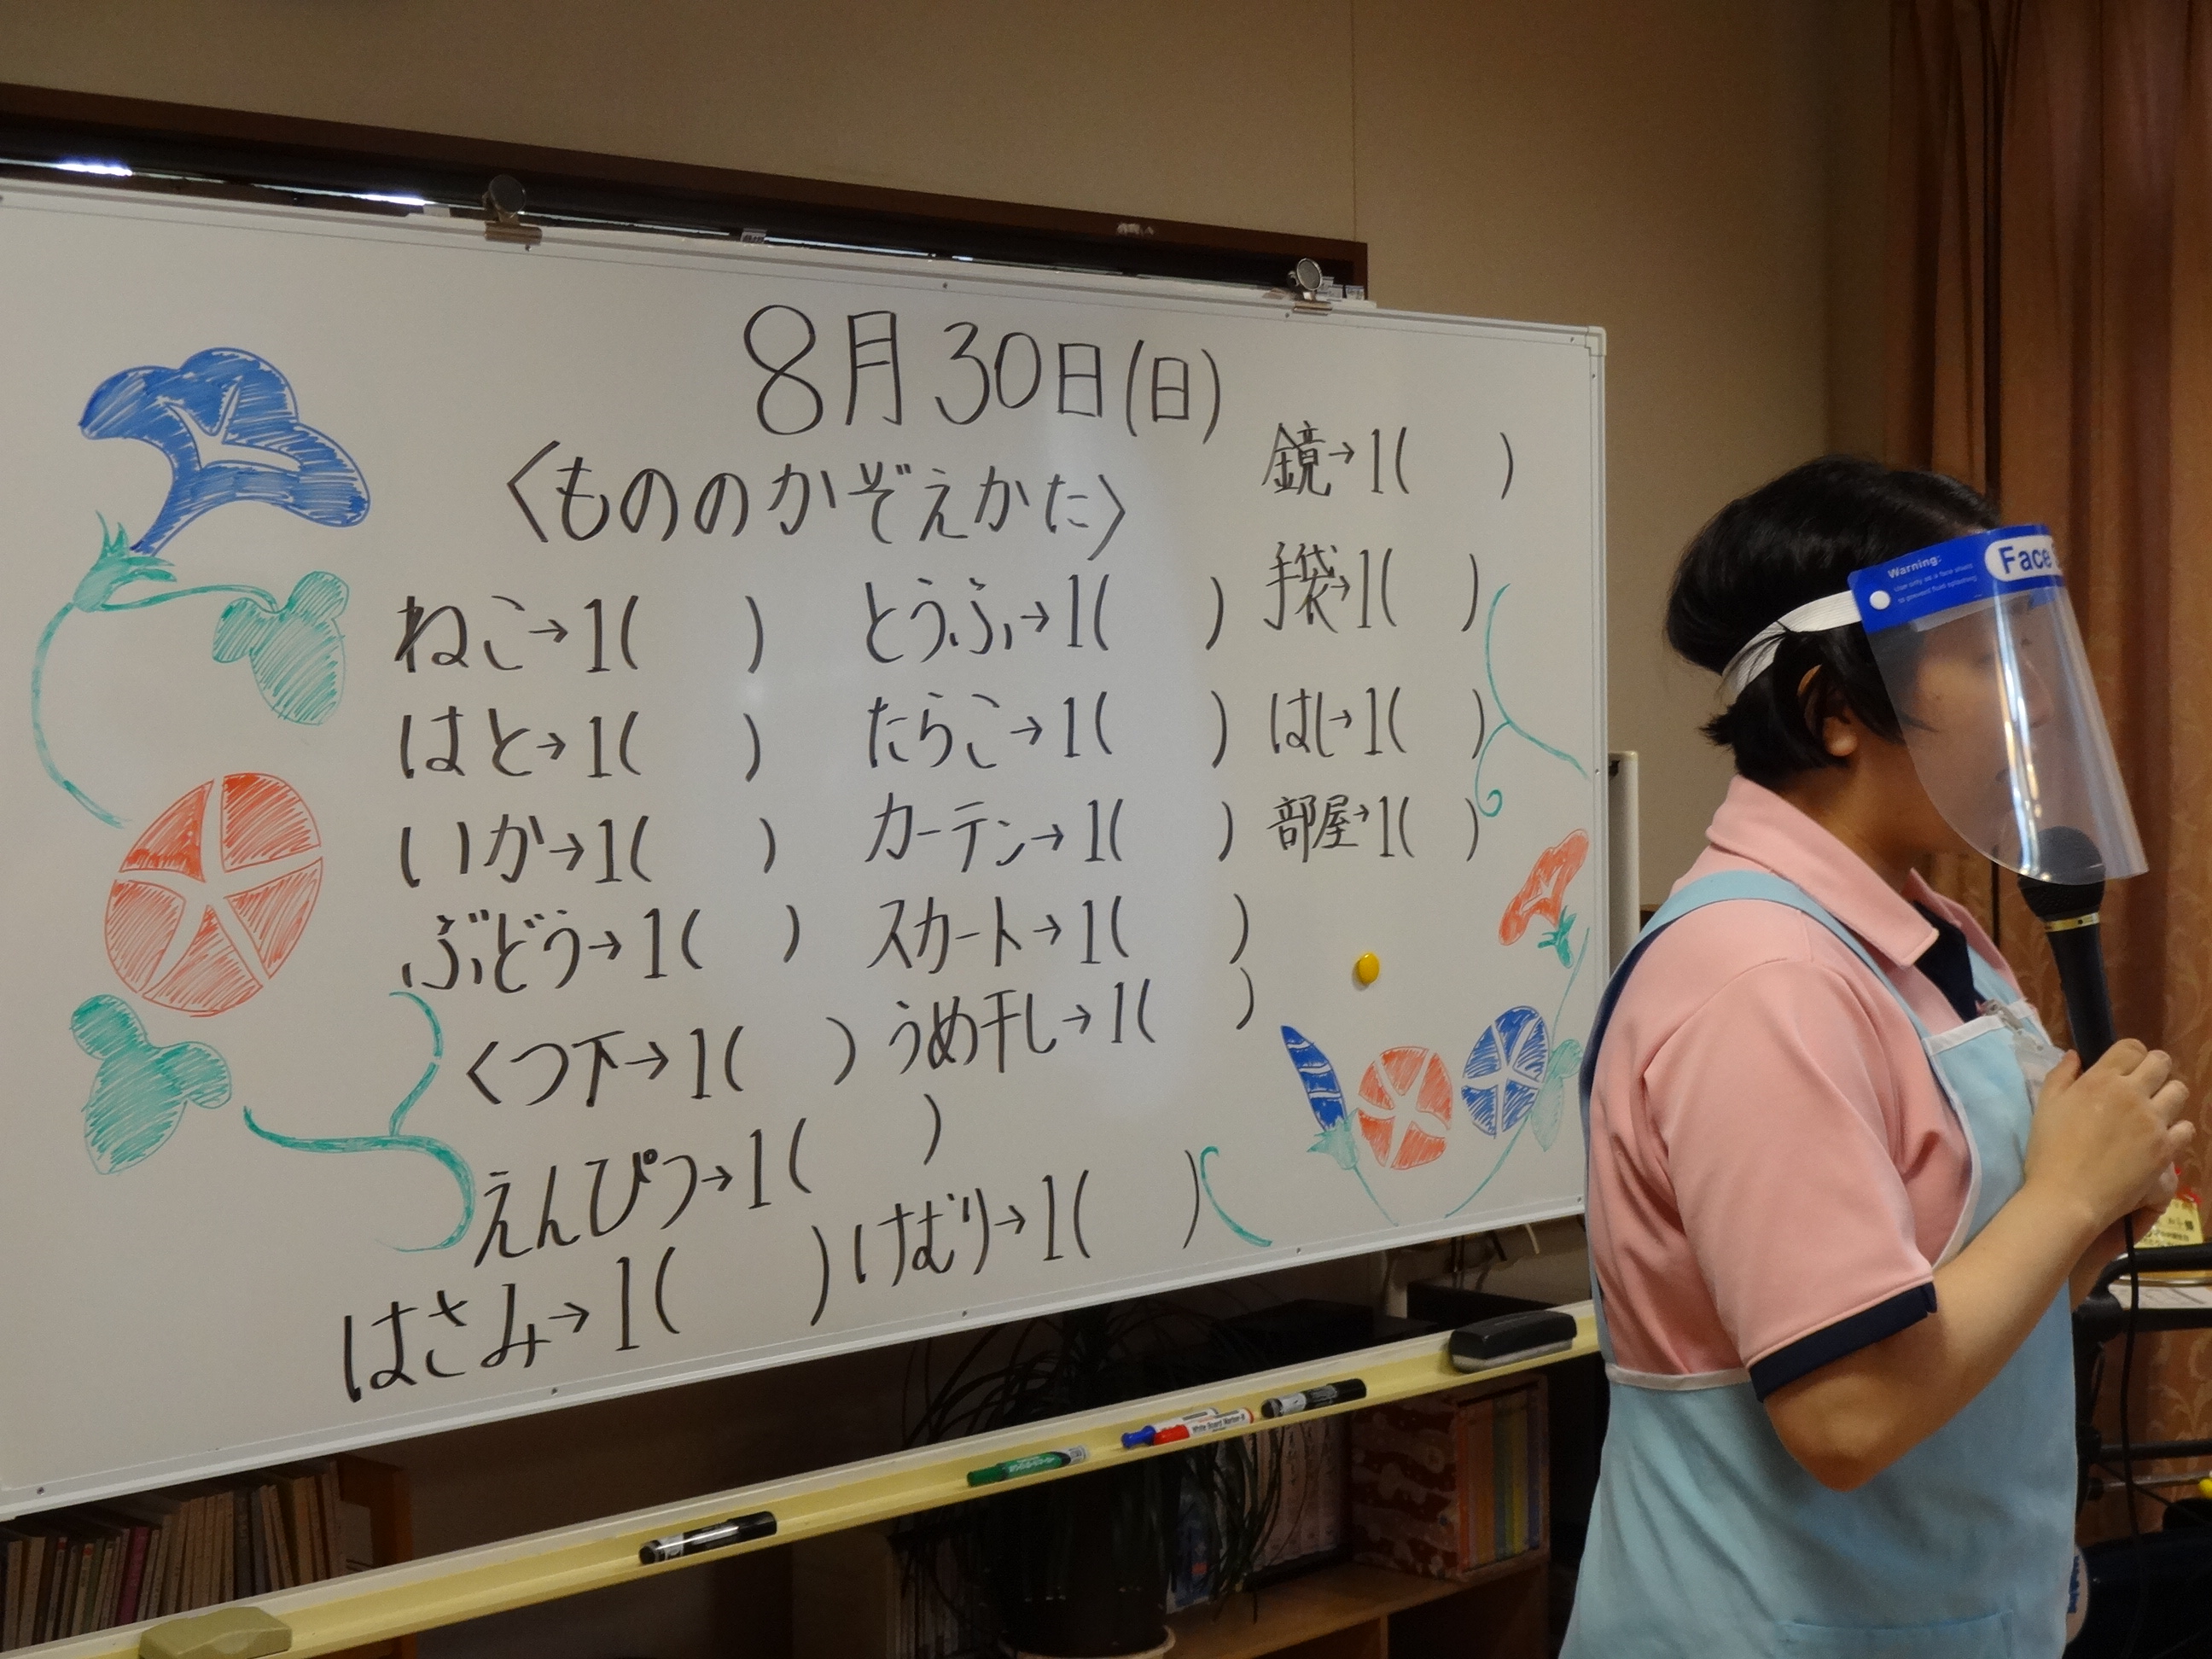 8月30日(日)
〈もののかぞえかた〉
ねこ→1(　)
はと→1(　)
いか→1(　)
ぶどう→1(　)
くつ下→1(　)
えんぴつ→1(　)
はさみ→1(　)
とうふ→1(　)
たらこ→1(　)
カーテン→1(　)
スカート→1(　)
うめ干し→1(　)
けむり→1(　)
鏡→1(　)
手袋→1(　)
はし→1(　)
部屋→1(　)
Warning:
Face